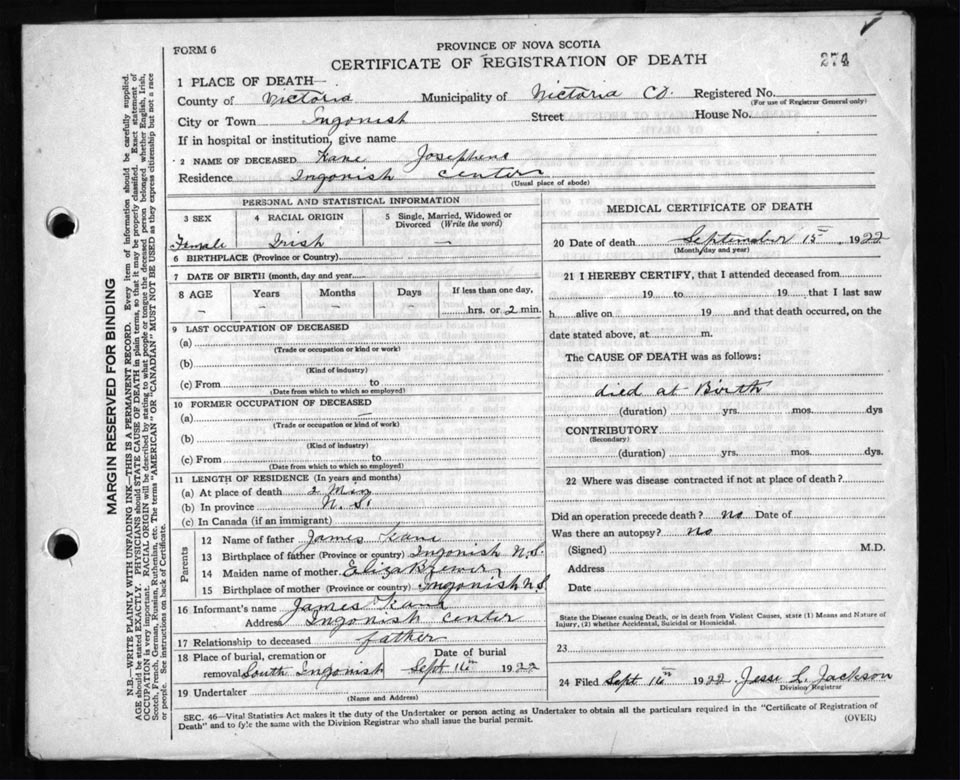 FORM 6
PROVINCE OF NOVA SCOTIA
CERTIFICATE OF REGISTRATION OF DEATH
274
1 PLACE OF DEATH—
County of Victoria Municipality of Victoria Co. Registered No.
(For use of Registrar General only)
City or Town Ingonish Street House No.
If in hospital or institution, give name
2 NAME OF DECEASED Kane Josephene
Residence Ingonish Center
(Usual place of abode)
PERSONAL AND STATISTICAL INFORMATION
3 SEX 4 RACIAL ORIGIN 5 Single, Married, Widowed or Divorced (Write the word)
Female Irish —
6 BIRTHPLACE (Province or Country)
7 DATE OF BIRTH (month, day and year)
8 AGE Years Months Days If less than one day,
– – – – hrs. or 2 min.
9 LAST OCCUPATION OF DECEASED
(a)
(Trade or occupation or kind or work)
(b)
(Kind of industry)
(c) From to
(Date from which to which so employed)
10 FORMER OCCUPATION OF DECEASED
(a) —
(Trade or occupation or kind of work)
(b)
(Kind of industry)
(c) From to
(Date from which to which so employed)
11 LENGTH OF RESIDENCE (In years and months)
(a) At place of death 2 Min
(b) In province N. S.
(c) In Canada (if an immigrant)
Parents
12 Name of father James Kane
13 Birthplace of father (Province or country) Ingonish N.S.
14 Maiden name of mother Eliza Brewer
15 Birthplace of mother (Province or country) Ingonish N.S.
16 Informant's name James Kane
Address Ingonish Center
17 Relationship to deceased father
18 Place of burial, cremation or removal South Ingonish
Date of burial Sept 16th 1922
19 Undertaker
(Name and Address)
MEDICAL CERTIFICATE OF DEATH
20 Date of death September 15 1922
(Month, day and year)
21 I HEREBY CERTIFY, that I attended deceased from
19 to 19 that I last saw
h alive on 19 and that death occurred, on the
date stated above, at m.
The CAUSE OF DEATH was as follows:
died at Birth
(duration) yrs. mos. dys
CONTRIBUTORY
(Secondary)
(duration) yrs. mos. dys.
22 Where was disease contracted if not at place of death?
Did an operation precede death? no Date of
Was there an autopsy? no
(Signed) M.D.
Address
Date
State the Disease causing Death, or in death from Violent Causes, state (1) Means and Nature of
Injury, (2) whether Accidental, Suicidal or Homicidal.
23
24 Filed Sept 16th 1922 Jesse L. Jackson
Division Registrar
SEC. 46—Vital Statistics Act makes it the duty of the Undertaker or person acting as Undertaker to obtain all the particulars required in the "Certificate of Registration of
Death" and to fyle the same with the Division Registrar who shall issue the burial permit.
(OVER)
MARGIN RESERVED FOR BINDING
N.B.—WRITE PLAINLY WITH UNFADING INK—THIS IS A PERMANENT RECORD. Every item of information should be carefully supplied.
AGE should be stated EXACTLY. PHYSICIANS should STATE CAUSE OF DEATH in plain terms, so that it may be properly classified. Exact statement of
OCCUPATION is very important. RACIAL ORIGIN will be described by stating to what people or tongue the deceased person belonged whether English, Irish,
Scotch, French, German, Russian, Ruthenian, etc. The terms "AMERICAN" OR "CANADIAN" MUST NOT BE USED as they express citizenship but not a race
or people. See instructions on back of Certificate.